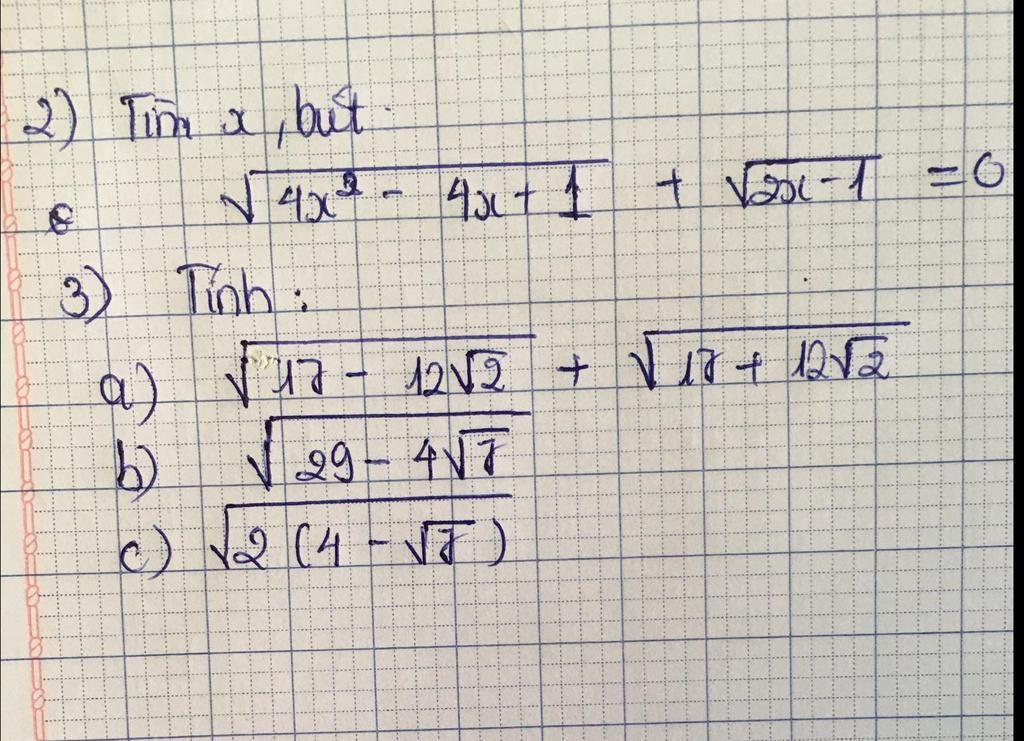 2) Tìm x, biết
√(4x² - 4x + 1) + √(2x - 1) = 0
3) Tính :
a) √(17 - 12√2) + √(17 + 12√2)
b) √(29 - 4√7)
c) √(2(4 - √7))